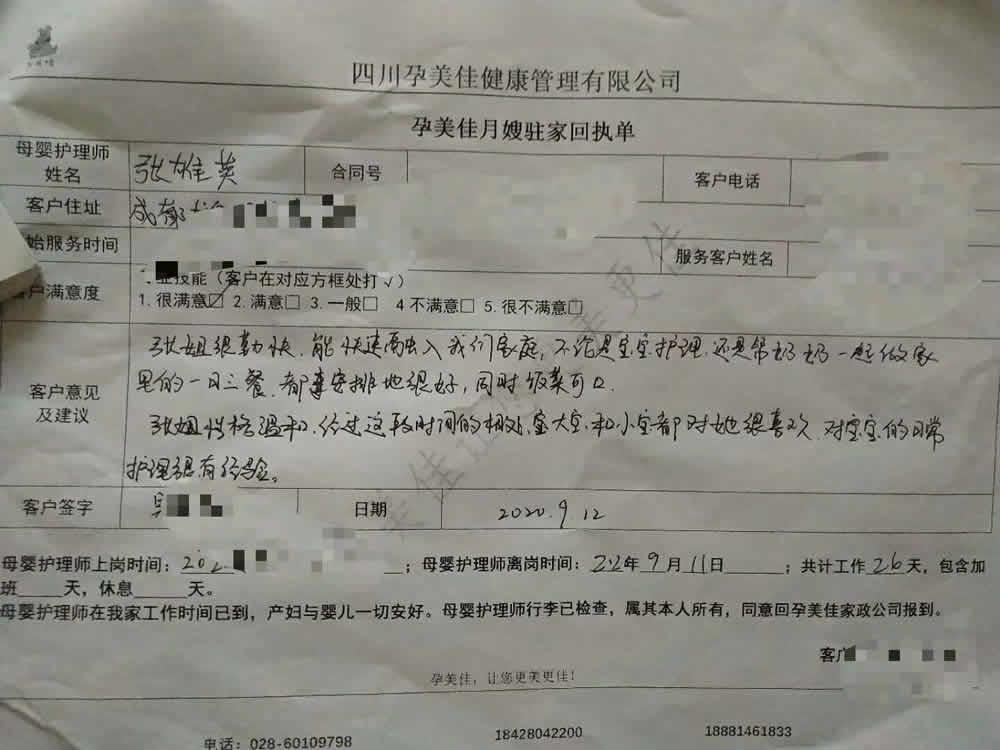 四川孕美佳健康管理有限公司
孕美佳月嫂驻家回执单
母婴护理师姓名 张雄英 合同号 客户电话
客户住址 成都
始服务时间 服务客户姓名
客户满意度 业技能（客户在对应方框处打√）
1. 很满意☑ 2. 满意□ 3. 一般□ 4 不满意□ 5. 很不满意□
客户意见及建议
张姐很勤快，能快速融入我们家庭，不论是宝宝护理，还是帮奶奶一起做家
里的一日三餐，都安排地很好，同时饭菜可口.
张姐性格温和，经过这段时间的相处，大宝和小宝都对她很喜欢，对宝宝的日常
护理很有经验。
客户签字 吴 日期 2020.9.12
母婴护理师上岗时间：202 ；母婴护理师离岗时间：22年9月11日 ；共计工作26天，包含加
班 天，休息 天。
母婴护理师在我家工作时间已到，产妇与婴儿一切安好。母婴护理师行李已检查，属其本人所有，同意回孕美佳家政公司报到。
客户
孕美佳，让您更美更佳！
电话：028-60109798 18428042200 18881461833